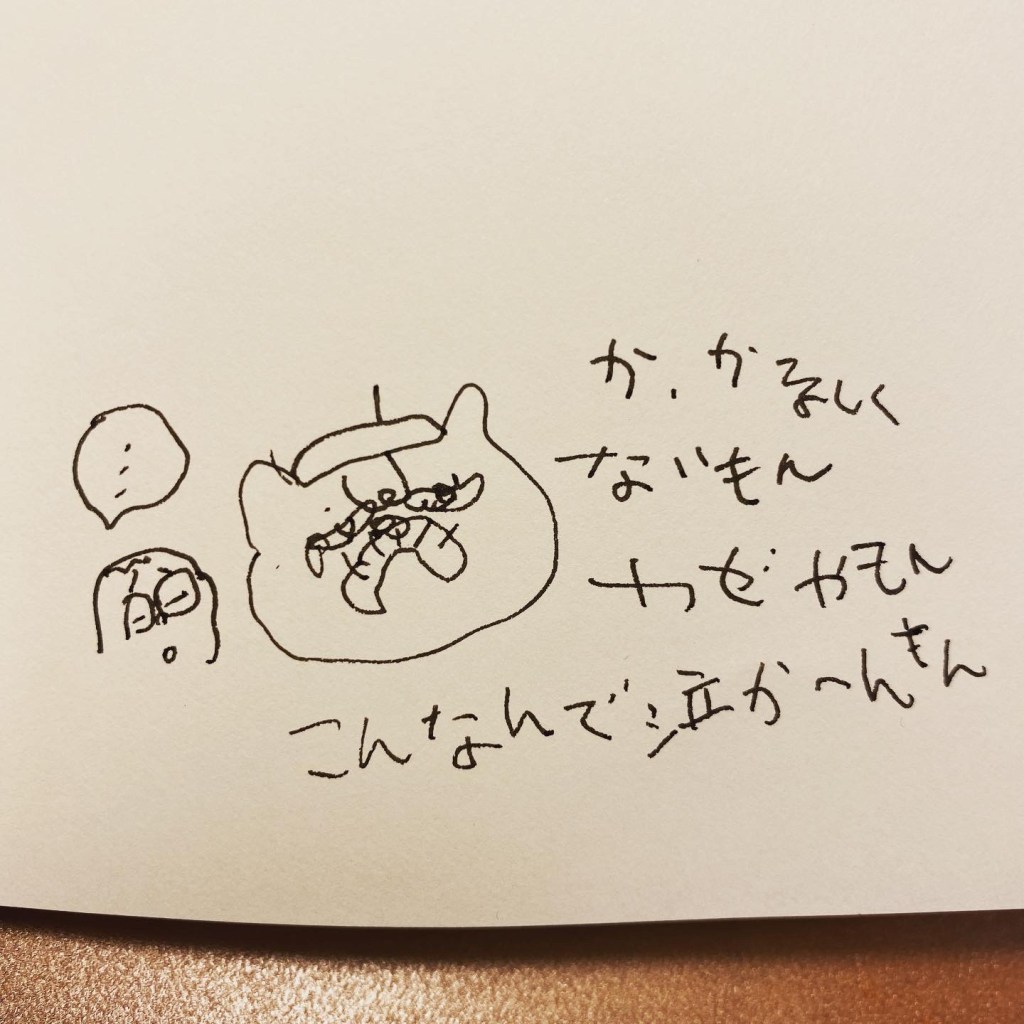 か、かなしく
ないもん
カゼやもん
こんなんで泣かへんもん